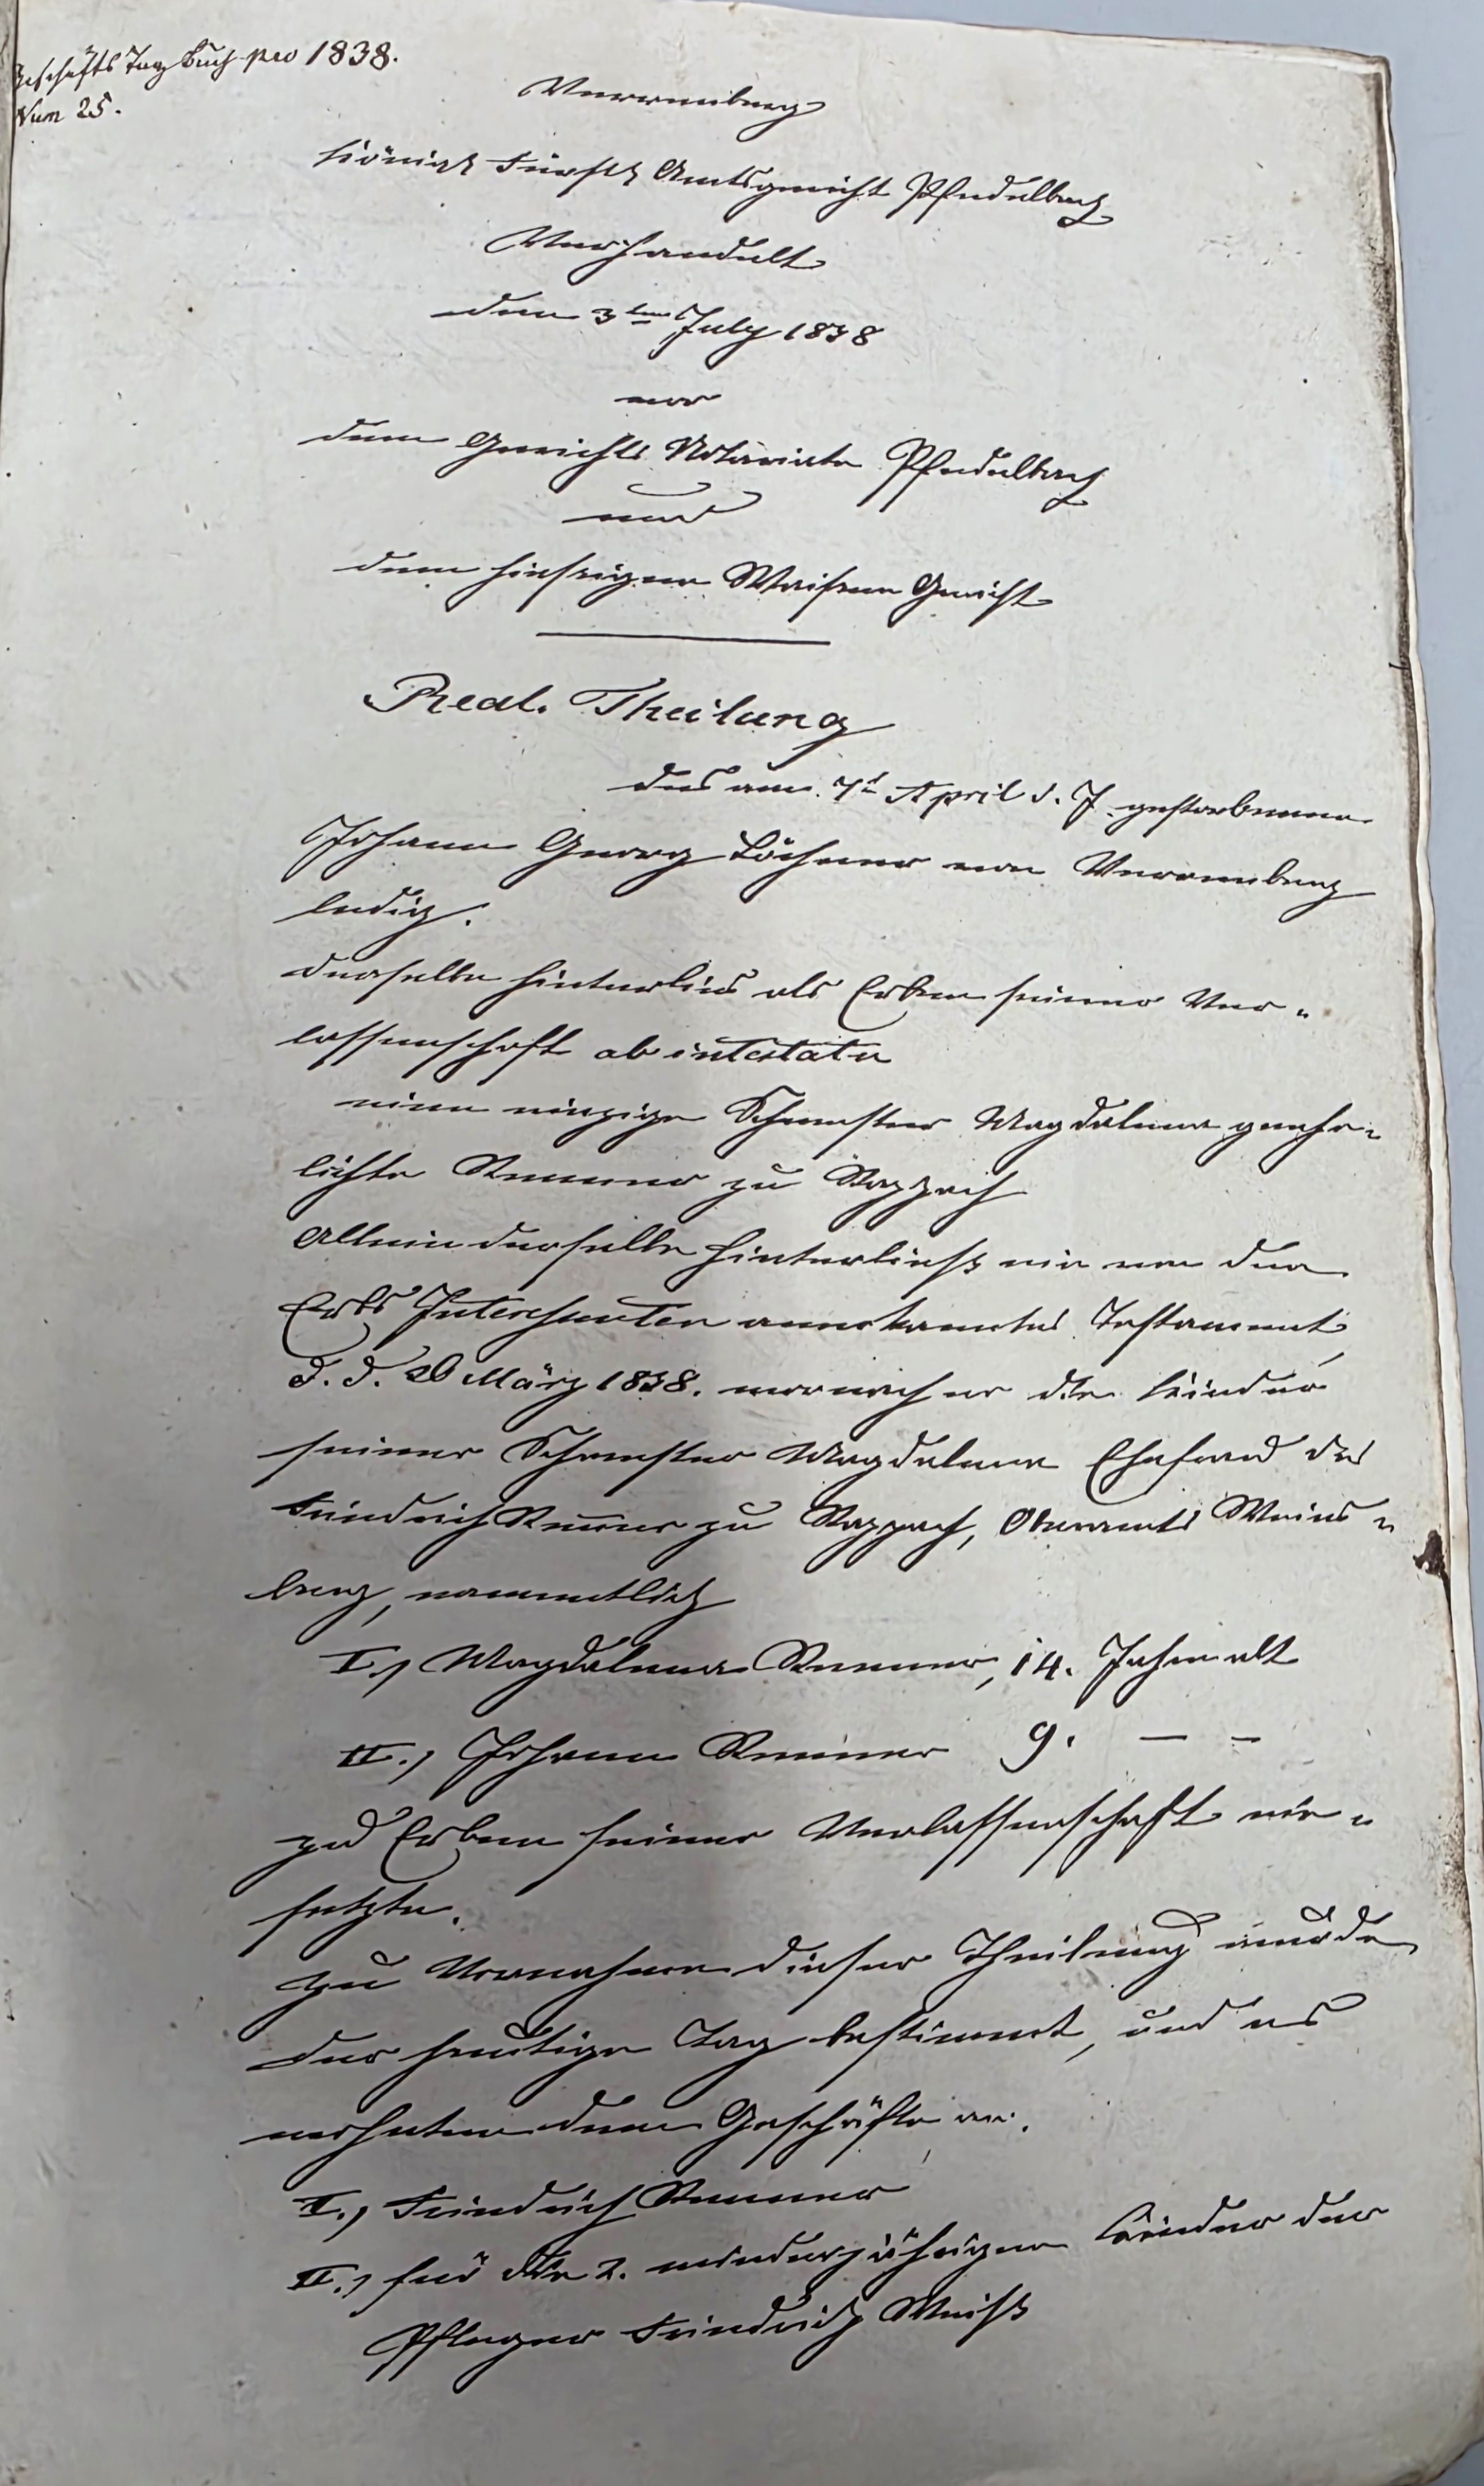 Geschäfts Tag Buch pro 1838.
Num 25.
Verrenberg
Königl. Fürstl. Amtsgericht Pfedelbach
Verhandelt
den 3ten July 1838
vor
dem Gerichts Notariate Pfedelbach
und
dem hiesigen Waisen Gericht
Real. Theilung
des am 7t April d. J. gestorbenen
Johann Georg Löchner von Verrenberg
ledig.
Derselbe hinterlies als Erben seiner Ver„
lassenschaft ab intestato
eine einzige Schwester Magdalena geehe„
lichte Renner zu Rappach
Allein derselbe hinterließ ein von den
Erbs Interessenten anerkanntes Testament
d. d. 20 März 1838. wornach er die Kinder
seiner Schwester Magdalena Ehefrau des
Friedrich Renner zu Rappach, Oberamts Weins„
berg, namentlich
I., Magdalena Renner, 14. Jahr alt
II., Johann Renner 9. — —
zu Erben seiner Verlassenschaft ein„
setzte.
Zu Vornahme dieser Theilung wurde
der heutige Tag bestimmt, und es
wohnten dem Geschäfte an.
I., Friedrich Renner
II., für die 2. minderjährigen Kinder der
Pfleger Friedrich Weiß